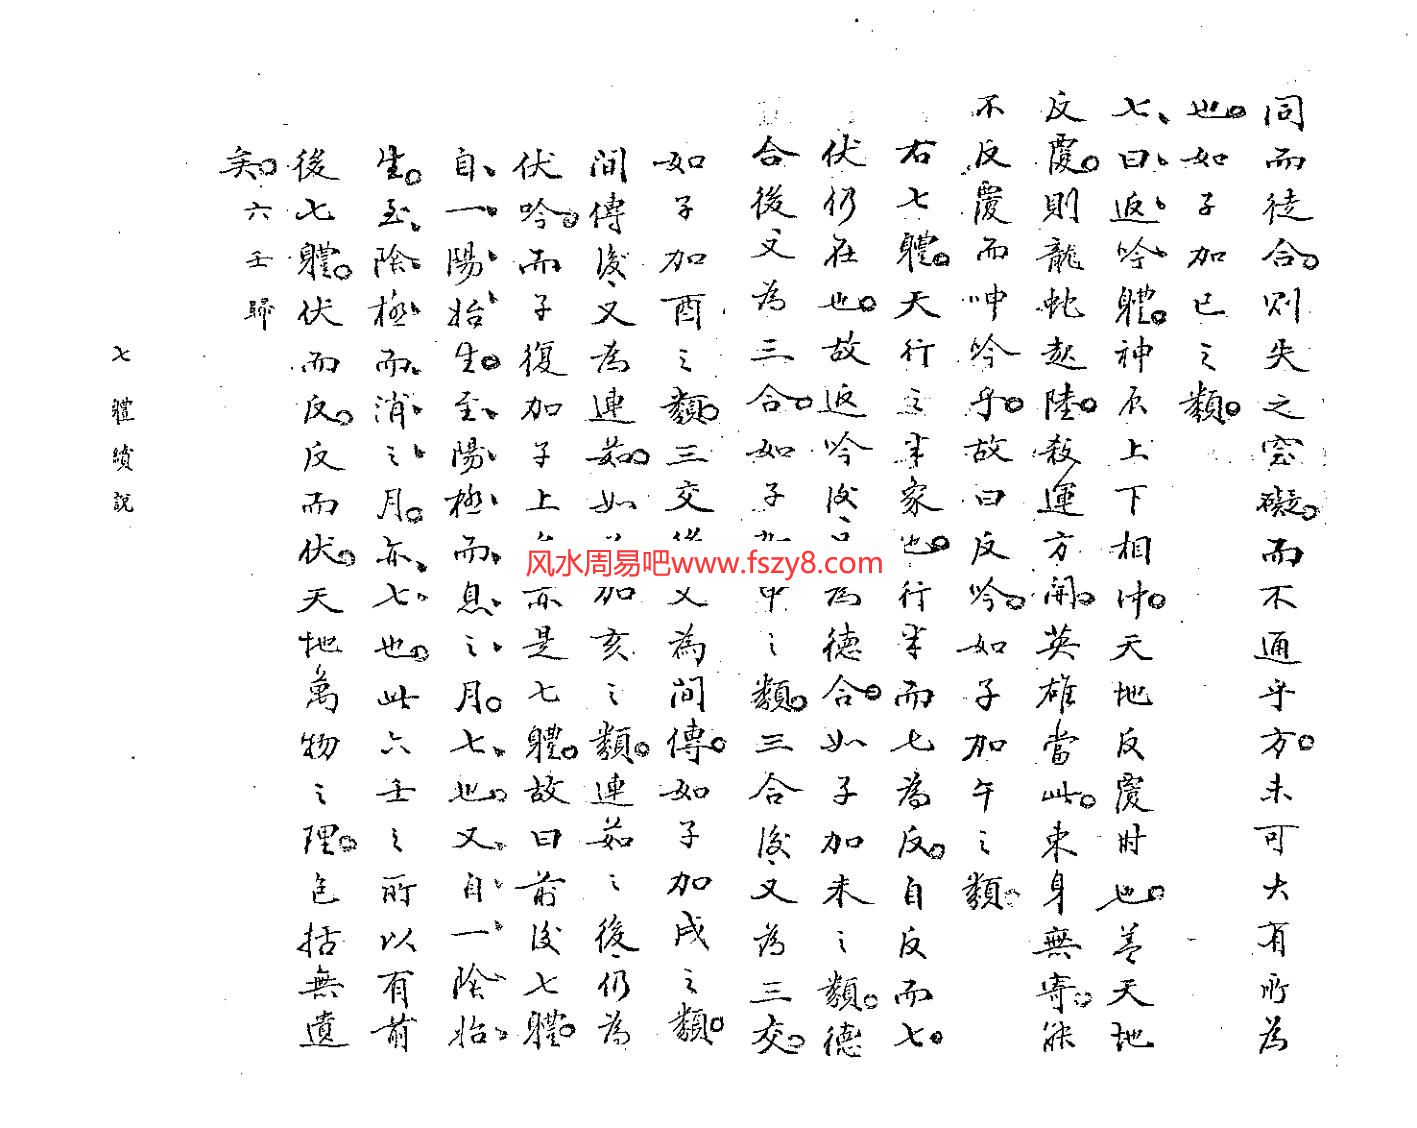 同而徒合。則失之窒礙。而不通乎方。未可大有所為
也。如子加巳之類。
七曰返吟體。神辰上下相冲。天地反覆时也。蓋天地
反覆。則龍蛇起陸。殺運方開。英雄當此。束身無寄。能
不反覆而呻吟乎。故曰反吟。如子加午之類。
右七體。天行之半家也。行半而七為反。自反而七。
伏仍在也。故返吟後為德合。如子加未之類。德
合後又為三合。如子中之類。三合後又為三交。
如子加酉之類。三交又為间傳。如子加戌之類。
间傳後又為連茹。如加亥之類。連茹之後仍為
伏吟。而子復加子上亦是七體。故曰前後七體。
自一陽始生。至陽極而息之月。七也。又自一陰始
生。至陰極而消之月。亦七也。此六壬之所以有前
後七體。伏而反。反而伏。天地萬物之理。包括無遺
矣。六壬歸
七體續説
风水周易吧www.fszy8.com